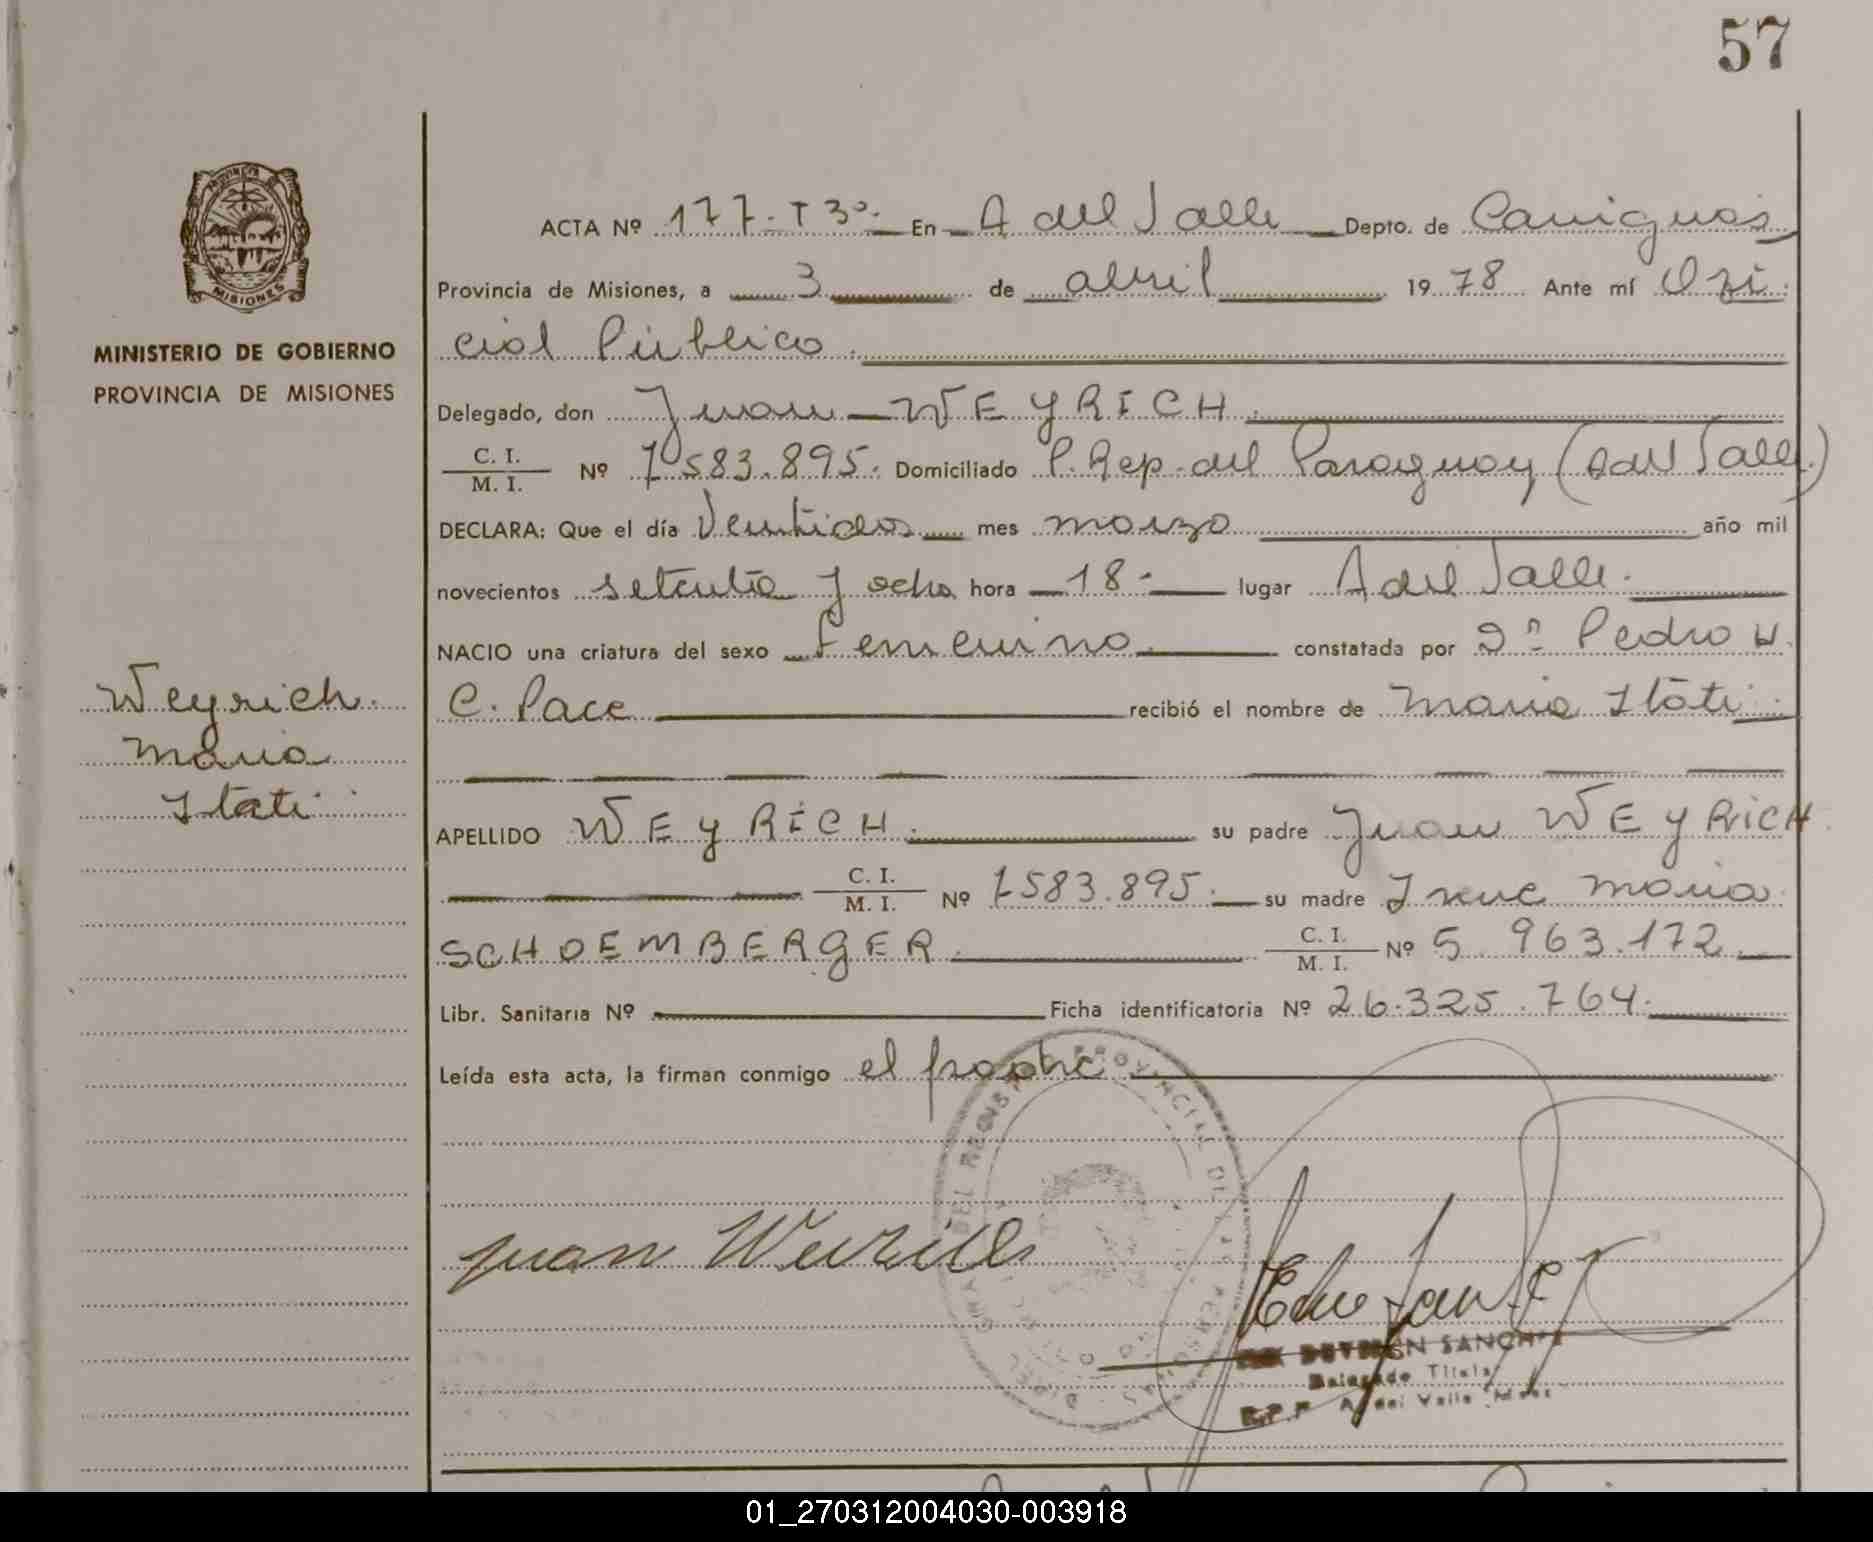 57
PROVINCIA DE
MISIONES
MINISTERIO DE GOBIERNO
PROVINCIA DE MISIONES
Weyrich.
Maria
Itati
ACTA Nº 177- T 3º- En A del Valle Depto. de Cainguas
Provincia de Misiones, a 3 de abril 1978 Ante mí Ofi
cial Público
Delegado, don Juan WEYRICH
C. I. / M. I. Nº 7583.895. Domiciliado P. Rep. del Paraguay (A del Valle)
DECLARA: Que el día Veintidos mes marzo año mil
novecientos setenta y ocho hora 18- lugar A del Valle.
NACIO una criatura del sexo femenino constatada por Dn Pedro H.
C. Pace recibió el nombre de Maria Itati
APELLIDO WEYRICH su padre Juan WEYRICH
C. I. / M. I. Nº 7583.895. su madre Irene Maria
SCHOEMBERGER C. I. / M. I. Nº 5.963.172
Libr. Sanitaria Nº Ficha identificatoria Nº 26.325.764.
Leída esta acta, la firman conmigo el padre
PROVINCIAL DE LAS PERSONAS
Juan Weirich
SANCHEZ
Delegado Titular
A. del Valle
01_270312004030-003918